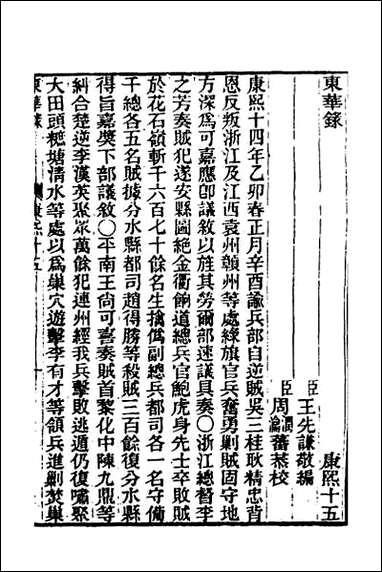 東華錄
康熙十五
臣王先謙敬編
臣周潤蕃周瀹蕃恭校
康熙十四年乙卯春正月辛酉諭兵部自逆賊吳三桂耿精忠背
恩反叛浙江及江西袁州贛州等處綠旗官兵奮勇剿賊固守地
方深爲可嘉應卽議敘以旌其勞爾部速議具奏○浙江總督李
之芳奏賊犯遂安縣圖絶金衢餉道總兵官鮑虎身先士卒敗賊
於花石嶺斬千六百七十餘名生擒僞副總兵都司各一名守備
千總各五名賊據分水縣都司趙得勝等殺賊三百餘復分水縣
得旨嘉奬下部議敘○平南王尚可喜奏賊首黎化中陳九鼎等
糾合楚逆李漢英聚眾萬餘犯連州經我兵擊敗逃遁仍復嘯聚
大田頭㘭塘清水等處以爲巢穴遊擊李有才等領兵進剿焚巢
東華錄
康熙十五
一